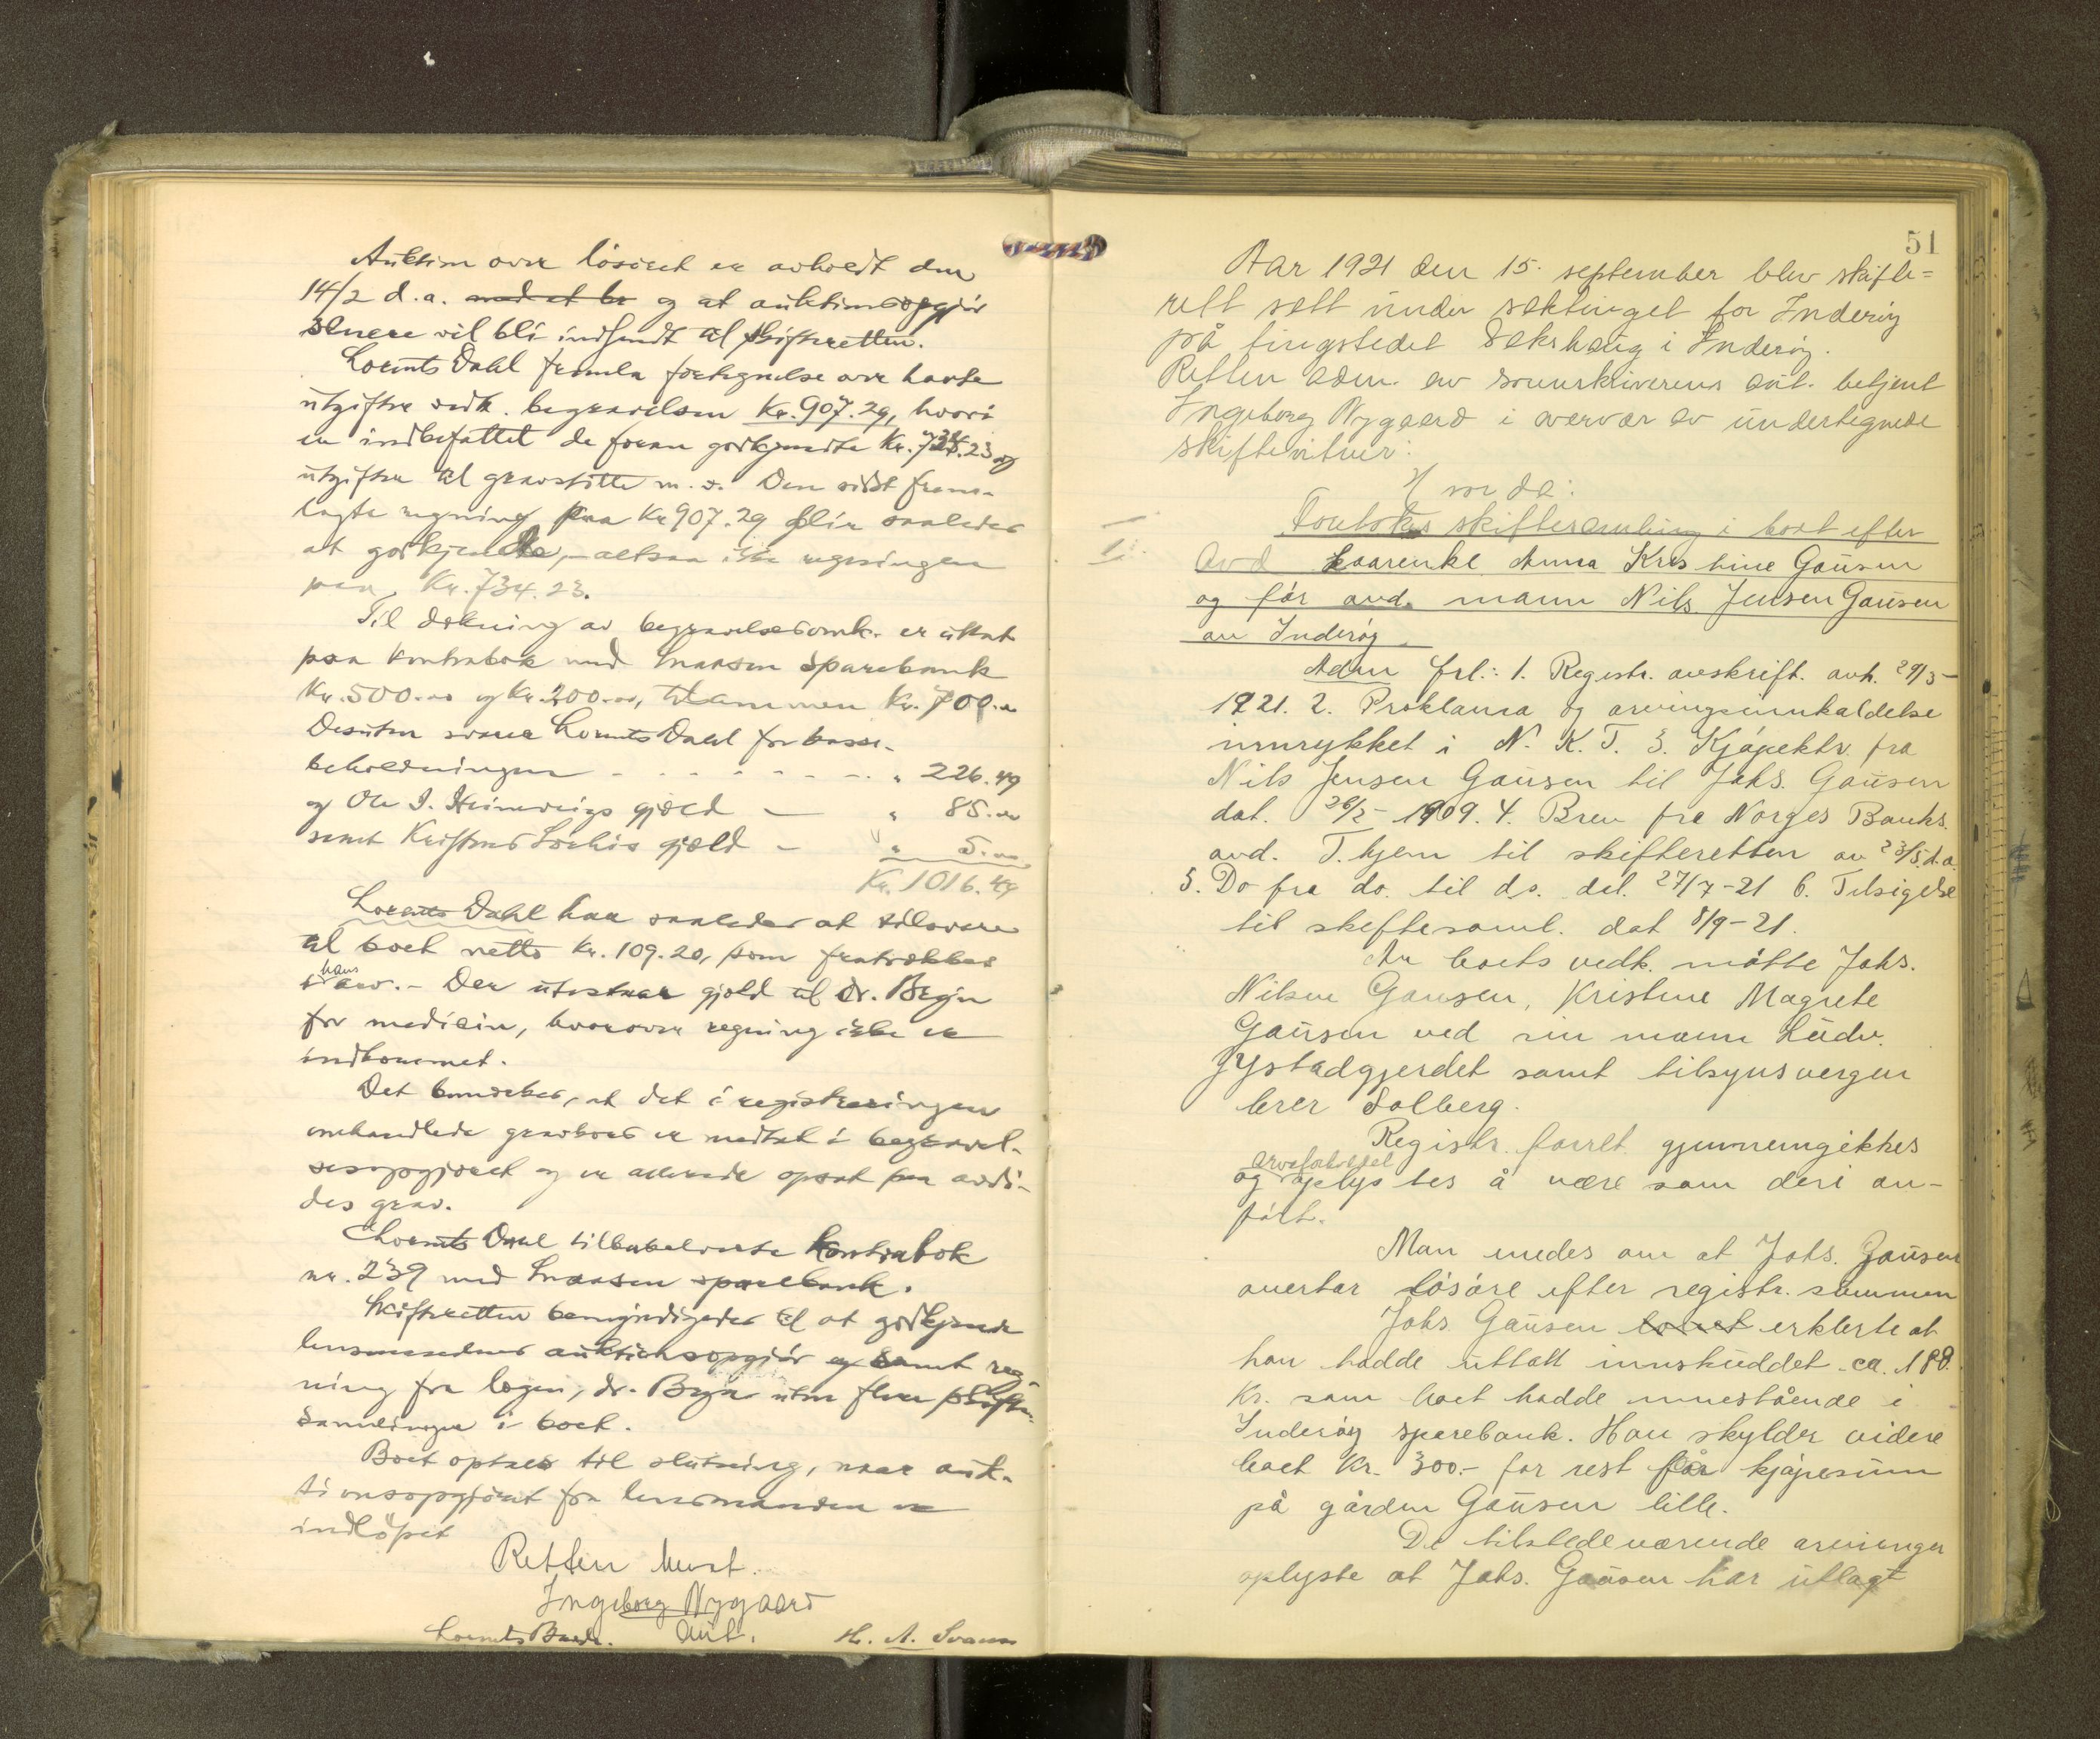 Auktion over løsøret er avholdt den
14/2 d.a. med at br og at auktionsopgjør
senere vil bli indsendt til skifteretten.
Lorents Dahl fremla fortegnelse over havte
utgifter vedk. begravelsen Kr. 907.29, hvori
er indbefattet de foran godkjendte Kr. 734.23 og
utgifter til gravstötte m.v. Den sidst frem-
lagte regning paa Kr 907.29 blir saaledes
at godkjende, - altsaa ikke regningen
paa Kr. 734.23.
Til dækning av begravelsesomk. er uttat
paa kontrabok med Snaasen Sparebank
Kr. 500.00 og Kr. 200.00, tilsammen Kr. 700.00
Desuten svarer Lorents Dahl for kasse-
beholdningen - - - - - - - " 226.49
og Ole I. gjæld - " 85.00
samt gjæld - " 5.00
Kr. 1016.49
Lorents Dahl har saaledes at tilsvare
til boet netto Kr. 109.20, som fratrækkes
i hans arv. - Der utestaar gjæld til dr. Brgn
for medicin, hvorover regning ikke er
indkommet.
Det bemerkes, at det i registreringen
omhandlede gravkors er medtat i begravel-
sesopgjøret og er allerede opsat paa avdø-
des grav.
Lorents Dahl tilbakeleverte kontrabok
nr. 239 med Snaasen sparebank.
Skifteretten bemyndigedes til at godkjende
lensmandens auktionsopgjør og samt reg-
ning fra lægen, dr. uten flere skifte-
samlinger i boet.
Boet optaes til slutning, naar auk-
tionsopgjøret fra lensmanden er
indløpet
Retten hevet.
Ingeborg Nygaard
aut.
Lorents H. A.
51
Aar 1921 den 15. september blev skifte=
rett sett under sektinget for Inderøy
på tingstedet Sakshaug i Inderøy.
Retten adm. av sorenskriverens aut. betjent
Ingeborg Nygaard i overvær av undertegnede
skiftevitner:
Hvorda:
Foretokes skiftesamling i boet efter
avd kaarenke Anna Kristine Gausen
og før avd. mann Nils Jensen Gausen
av Inderøy.
Adm frl.: 1. Registr. avskrift. avh. 29/3-
1921. 2. Proklama og arvingsinnkaldelse
innrykket i N. K. T. 3. Kjøpektr. fra
Nils Jensen Gausen til Johs. Gausen
dat. 26/2- 1909. 4. Brev fra Norges Banks
avd. T.hjem til skifteretten av 23/5 d.a.
5. Do fra do. til do. dat. 27/7-21 6. Tilsigelse
til skiftesaml. dat 8/9-21.
Av boets vedk. møtte Johs.
Nilsen Gausen, Kristine Magrete
Gausen ved sin mann Ludv.
Gystadgjerdet samt tilsynsvergen
lærer Solberg.
Registr. forret. gjennemgikkes
og arveforholdet oplystes å være som deri an-
ført.
Man enedes om at Johs. Gausen
overtar løsøre efter registr. summen
Johs. Gausen boret erklerte at
han hadde uttatt innskuddet ca. 180.
Kr. som boet hadde innestående i
Inderøy sparebank. Han skylder videre
boet Kr. 300.- for rest før kjøpesum
på gården Gausen lille.
De tilstedeværende arvinger
oplyste at Johs. Gausen har utlagt